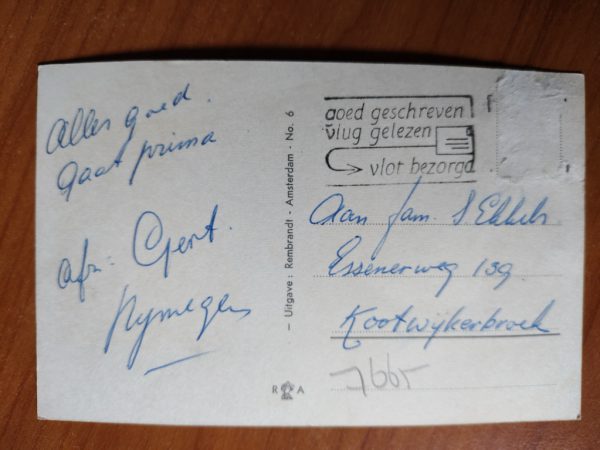 Alles goed.
Gaat prima
afz: Gert.
Nijmegen
— Uitgave: Rembrandt - Amsterdam - No. 6
R A
goed geschreven
vlug gelezen
vlot bezorgd
Aan fam.
Essenerweg 139
Kootwijkerbroek